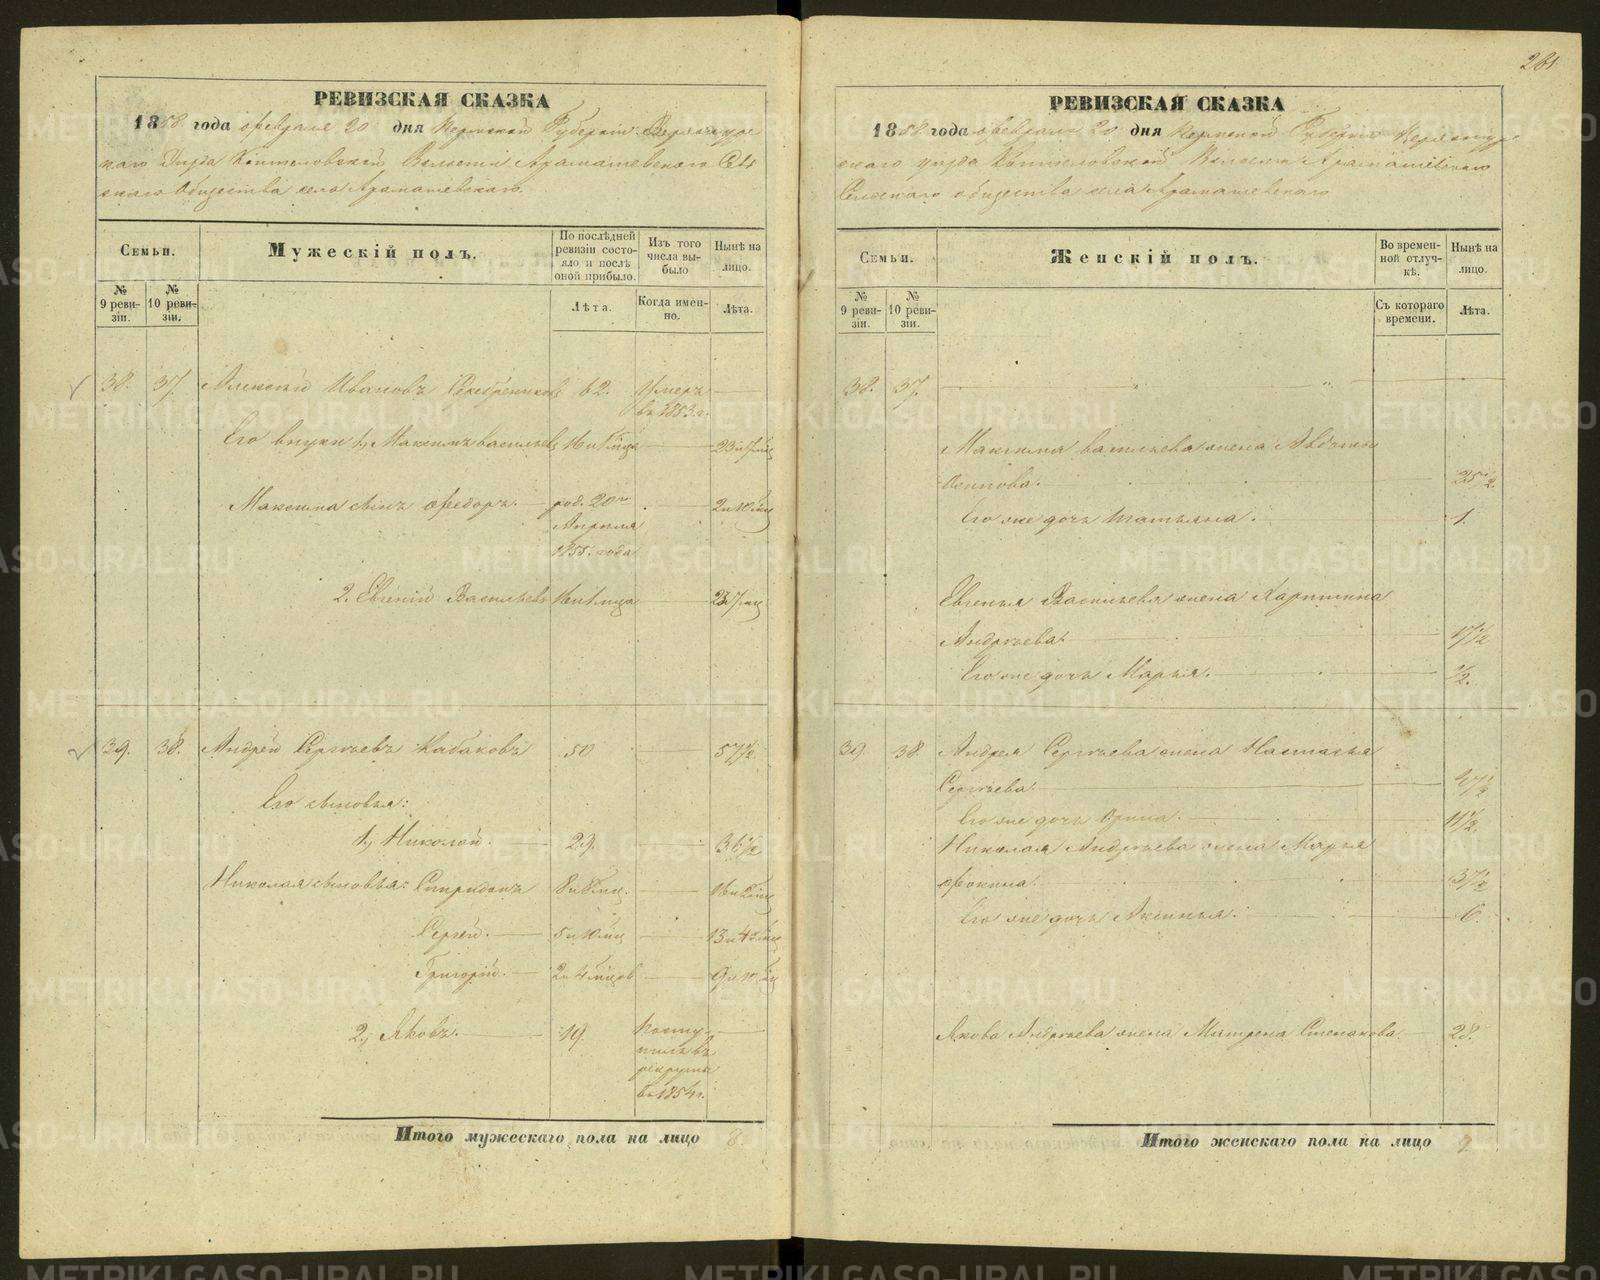 281
РЕВИЗСКАЯ СКАЗКА
1858 года февраля 20 дня Пермской Губернии Верхотурс
каго Уѣзда Коптеловской Волости Арамашевскаго Сель
скаго Общества села Арамашевскаго.
Семьи.
Мужескій полъ.
По послѣдней ревизіи состояло и послѣ оной прибыло.
Изъ того числа выбыло
Нынѣ на лицо.
№ 9 ревизіи.
№ 10 ревизіи.
Лѣта.
Когда именно.
Лѣта.
38. 37. Алексѣй Ивановъ 62. Умеръ
въ 1853 г.
Его внуки 1, Максимъ Васильевъ
Максима сынъ Федоръ. род. 20го
Апрѣля
1855. года
2. Евгеній Васильевъ
39. 38. Андрей Сергѣевъ Кабаковъ 50 57½
Его сыновья:
1, Николай. 29. 36½
Николая сыновья: Спиридонъ
Сергѣй.
Григорій.
2, Яковъ. 19. Посту-
пилъ въ
рекруты
въ 1854 г.
Итого мужескаго пола на лицо 8.
РЕВИЗСКАЯ СКАЗКА
1858 года февраля 20 дня Пермской Губерніи Верхотур
скаго уѣзда Коптеловской Волости Арамашевскаго
Сельскаго общества села Арамашевскаго
Семьи.
Женскій полъ.
Во временной отлучкѣ.
Нынѣ на лицо.
№ 9 ревизіи.
№ 10 ревизіи.
Съ котораго времени.
Лѣта.
38. 37.
Максима Васильева жена Авдотья
Осипова. 25½.
Его же дочь Татьяна. 1.
Евгенья Васильева жена Харитина
Андрѣева. 17½
Его же дочь Марья. ½.
39. 38. Андрея Сергѣева жена Настасья
Сергѣева
Его же дочь Орина. 11½.
Николая Андрѣева жена Марья
Фокина. 37½
Его же дочь Аксинья. 6.
Якова Андрѣева жена Матрена Степанова 28.
Итого женскаго пола на лицо 9.
METRIKI.GASO-URAL.RU